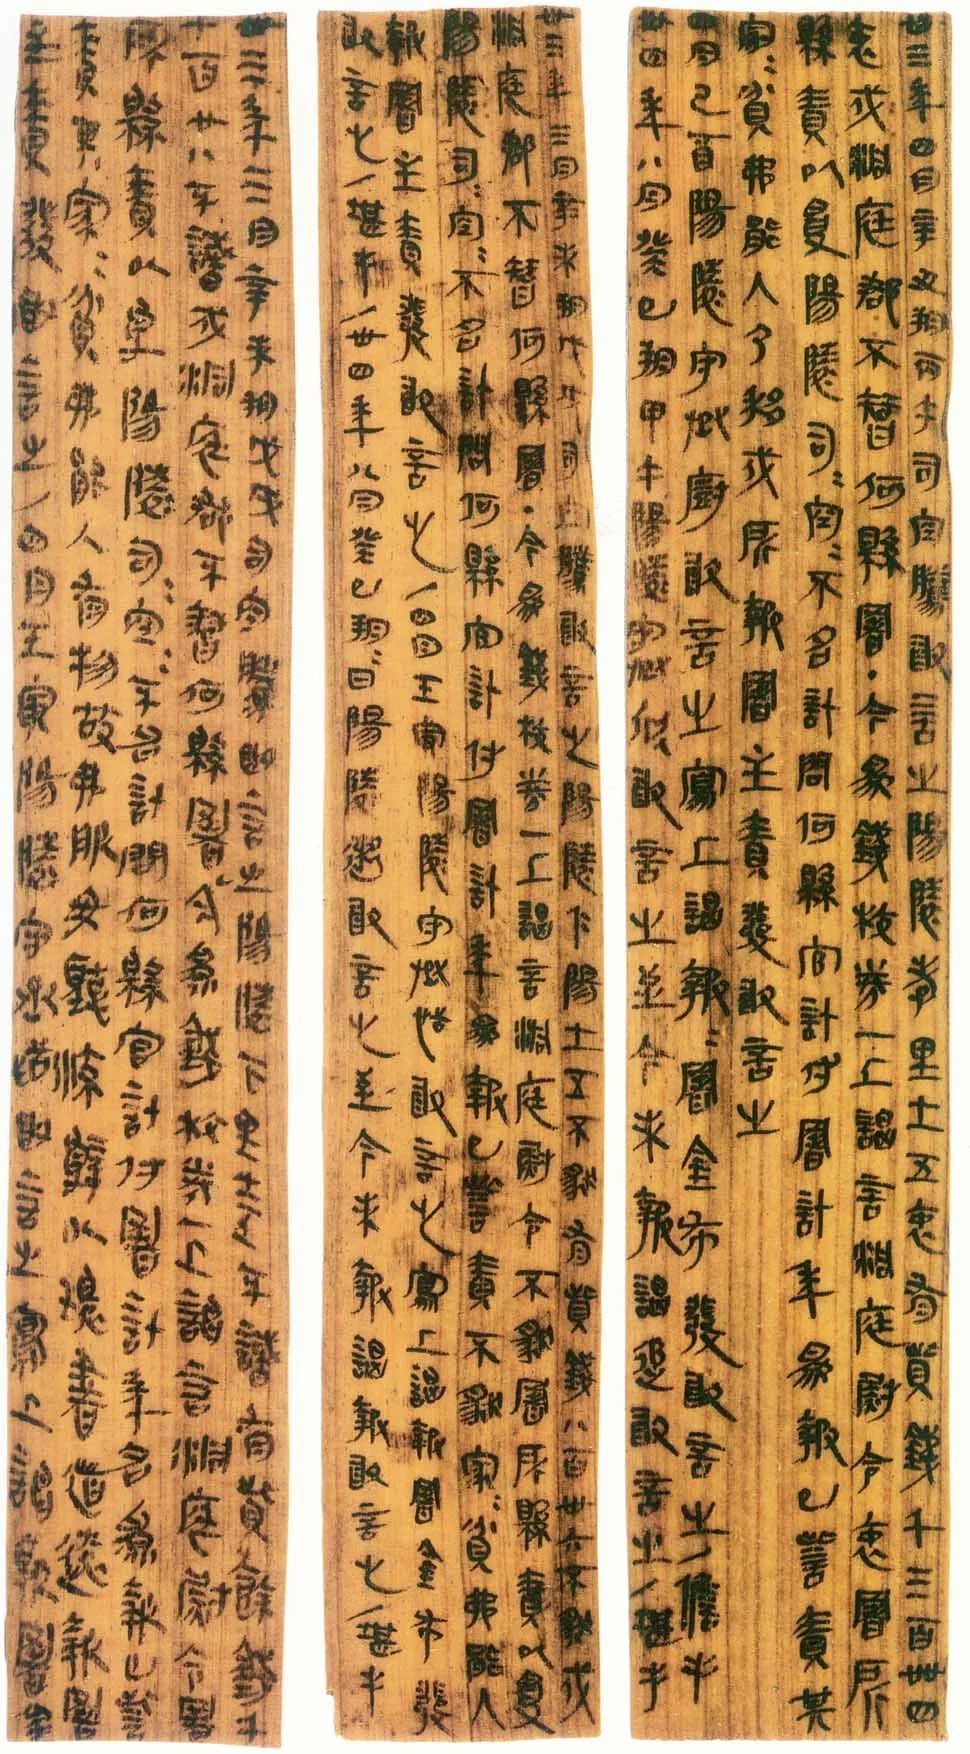 卅三年四月辛丑朔丙午司空騰敢言之陽陵孝里士五衷有貲錢千三百卌四
衷戍洞庭郡不智何縣署·今為錢校券一上謁言洞庭尉令衷署所
縣責以受陽陵司=空=不名計問何縣官計付署計年為報已訾責其
家=貧弗能入乃移戍所報署主責發敢言之
四月己酉陽陵守丞廚敢言之寫上謁報=署金布發敢言之/儋手
卅四年八月癸巳朔甲午陽陵守丞欣敢言之至今未報謁追敢言之/堪手
卅三年三月辛未朔戊戌司空騰敢言之陽陵仆陽士五不豺有貲錢八百卅六不豺戍
洞庭郡不智何縣署·今為錢校券一上謁言洞庭尉令不豺署所縣責以受
陽陵司=空=不名計問何縣官計付署計年為報已訾責不豺家=貧弗能入
報署主責發敢言之/四月壬寅陽陵守丞恬敢言之寫上謁報署金布發
敢言之/堪手/卅四年八月癸巳朔=日陽陵遫敢言之至今未報謁報敢言之/堪手
卅三年三月辛未朔戊戌司空騰敢言之陽陵下里士五不識有貲餘錢千
七百廿八不識戍洞庭郡不智何縣署今為錢校券一上謁言洞庭尉令署
所縣責以受陽陵司=空=不名計問何縣官計付署計年名為報已訾
責其家=貧弗能入有物故弗服毋聽流辭以環書道遠報署
主責發敢言之/四月壬寅陽陵守丞恬敢言之寫上謁報署金